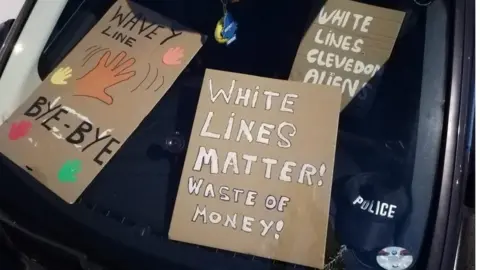 WAVEY
LINE
BYE-BYE
WHITE
LINES
MATTER!
WASTE OF
MONEY!
WHITE
LINES
CLEVEDON
ALIENS
POLICE